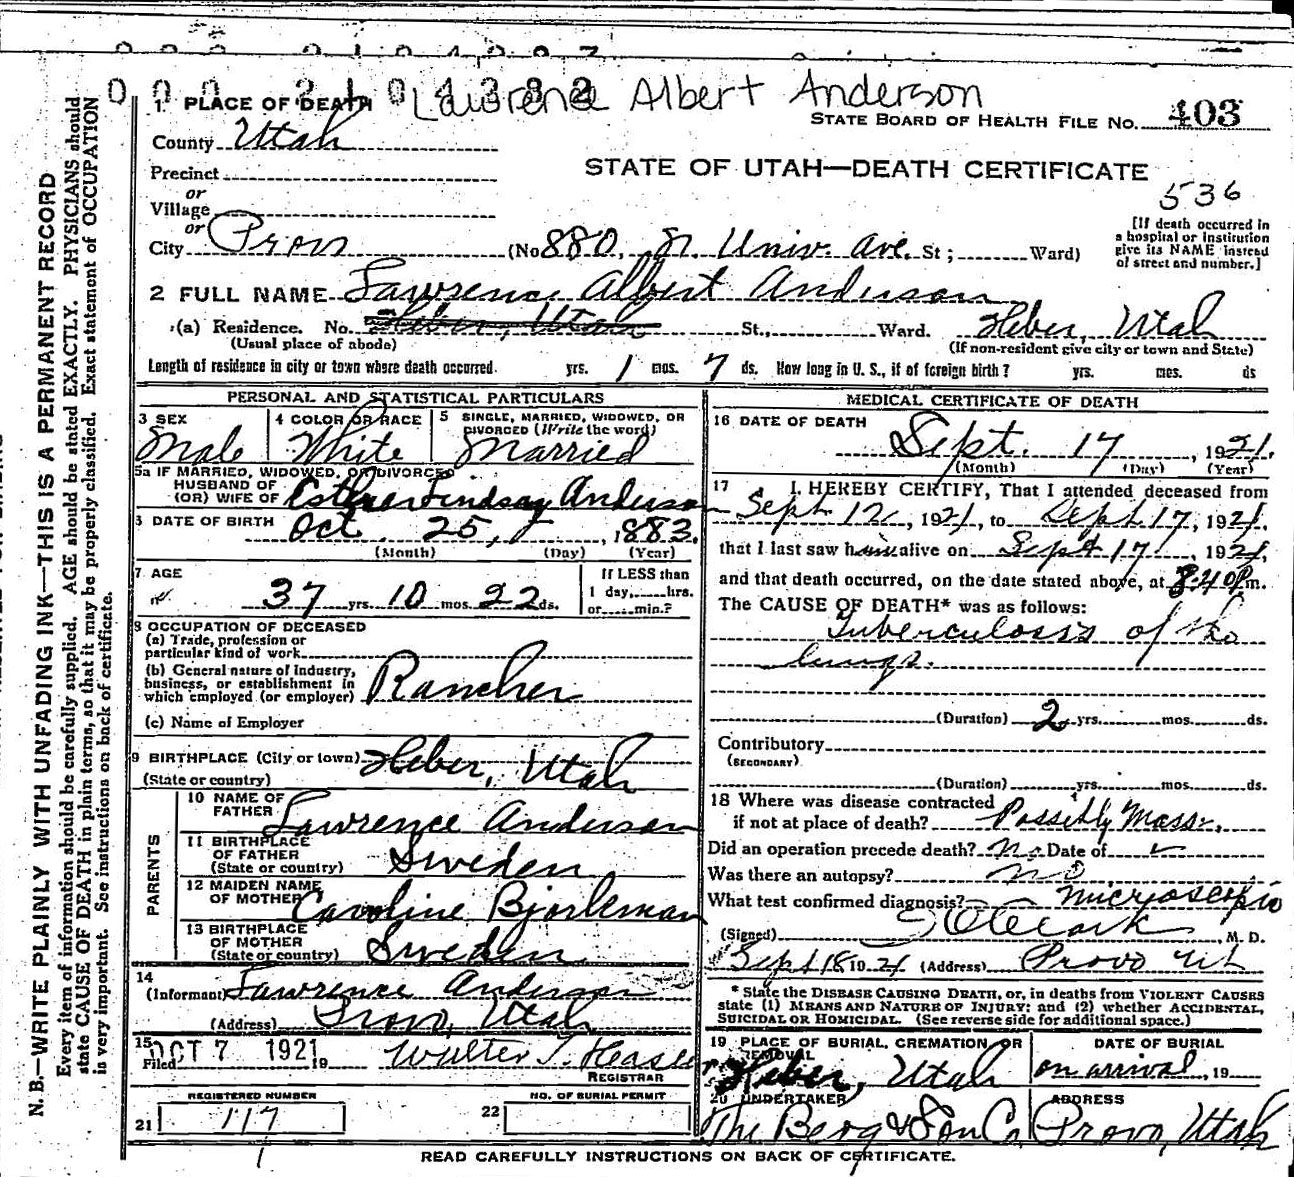 000 2104382
Lawrence Albert Anderson
1 PLACE OF DEATH
STATE BOARD OF HEALTH FILE NO. 403
County Utah
STATE OF UTAH—DEATH CERTIFICATE
Precinct
536
or
Village
or
City Provo (No 880 N. Univ. Ave. St; Ward)
[If death occurred in
a hospital or institution
give its NAME instead
of street and number.]
2 FULL NAME Lawrence Albert Anderson
(a) Residence. No. Heber, Utah St., Ward. Heber, Utah
(Usual place of abode) (If non-resident give city or town and State)
Length of residence in city or town where death occurred. yrs. 1 mos. 7 ds. How long in U. S., if of foreign birth? yrs. mos. ds
PERSONAL AND STATISTICAL PARTICULARS
3 SEX Male
4 COLOR OR RACE White
5 SINGLE, MARRIED, WIDOWED, OR
DIVORCED (Write the word)
Married
5a IF MARRIED, WIDOWED, OR DIVORCED
HUSBAND OF
(OR) WIFE OF Esther Lindsay Anderson
DATE OF BIRTH Oct. 25, 1883
(Month) (Day) (Year)
7 AGE
37 yrs. 10 mos. 22 ds.
If LESS than
1 day, hrs.
or min.?
8 OCCUPATION OF DECEASED
(a) Trade, profession or
particular kind of work
(b) General nature of industry,
business, or establishment in
which employed (or employer) Rancher
(c) Name of Employer
9 BIRTHPLACE (City or town) Heber, Utah
(State or country)
PARENTS
10 NAME OF
FATHER Lawrence Anderson
11 BIRTHPLACE
OF FATHER
(State or country) Sweden
12 MAIDEN NAME
OF MOTHER Caroline Bjorkman
13 BIRTHPLACE
OF MOTHER
(State or country) Sweden
14
(Informant) Lawrence Anderson
(Address) Provo, Utah
15 OCT 7 1921
Filed 19 Walter T.
REGISTRAR
REGISTERED NUMBER
21 117
NO. OF BURIAL PERMIT
22
MEDICAL CERTIFICATE OF DEATH
16 DATE OF DEATH
Sept. 17, 1921.
(Month) (Day) (Year)
17 I HEREBY CERTIFY, That I attended deceased from
Sept 12, 1921, to Sept 17, 1921,
that I last saw him alive on Sept 17, 1921,
and that death occurred, on the date stated above, at 8:40 P.m.
The CAUSE OF DEATH* was as follows:
Tuberculosis of the
lungs.
(Duration) 2 yrs. mos. ds.
Contributory
(SECONDARY)
(Duration) yrs. mos. ds.
18 Where was disease contracted
if not at place of death? Possibly Mass.
Did an operation precede death? no Date of
Was there an autopsy? no
What test confirmed diagnosis? microscopic
(Signed) Clark, M. D.
Sept 18 1921 (Address) Provo Ut
* State the DISEASE CAUSING DEATH, or, in deaths from VIOLENT CAUSES
state (1) MEANS AND NATURE OF INJURY; and (2) whether ACCIDENTAL,
SUICIDAL OR HOMICIDAL. (See reverse side for additional space.)
19 PLACE OF BURIAL, CREMATION, OR
REMOVAL
Heber, Utah
DATE OF BURIAL
on arrival, 19
20 UNDERTAKER
The Berg & Son Co.
ADDRESS
Provo, Utah
READ CAREFULLY INSTRUCTIONS ON BACK OF CERTIFICATE.
N. B.—WRITE PLAINLY WITH UNFADING INK—THIS IS A PERMANENT RECORD
Every item of information should be carefully supplied. AGE should be stated EXACTLY. PHYSICIANS should
state CAUSE OF DEATH in plain terms, so that it may be properly classified. Exact statement of OCCUPATION
is very important. See instructions on back of certificate.